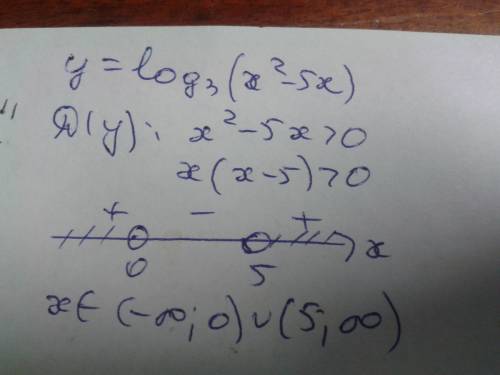 y = log₃(x²-5x)
D(y): x²-5x>0
x(x-5)>0
+ - +
0 5 x
x∈(-∞; 0)∪(5; ∞)